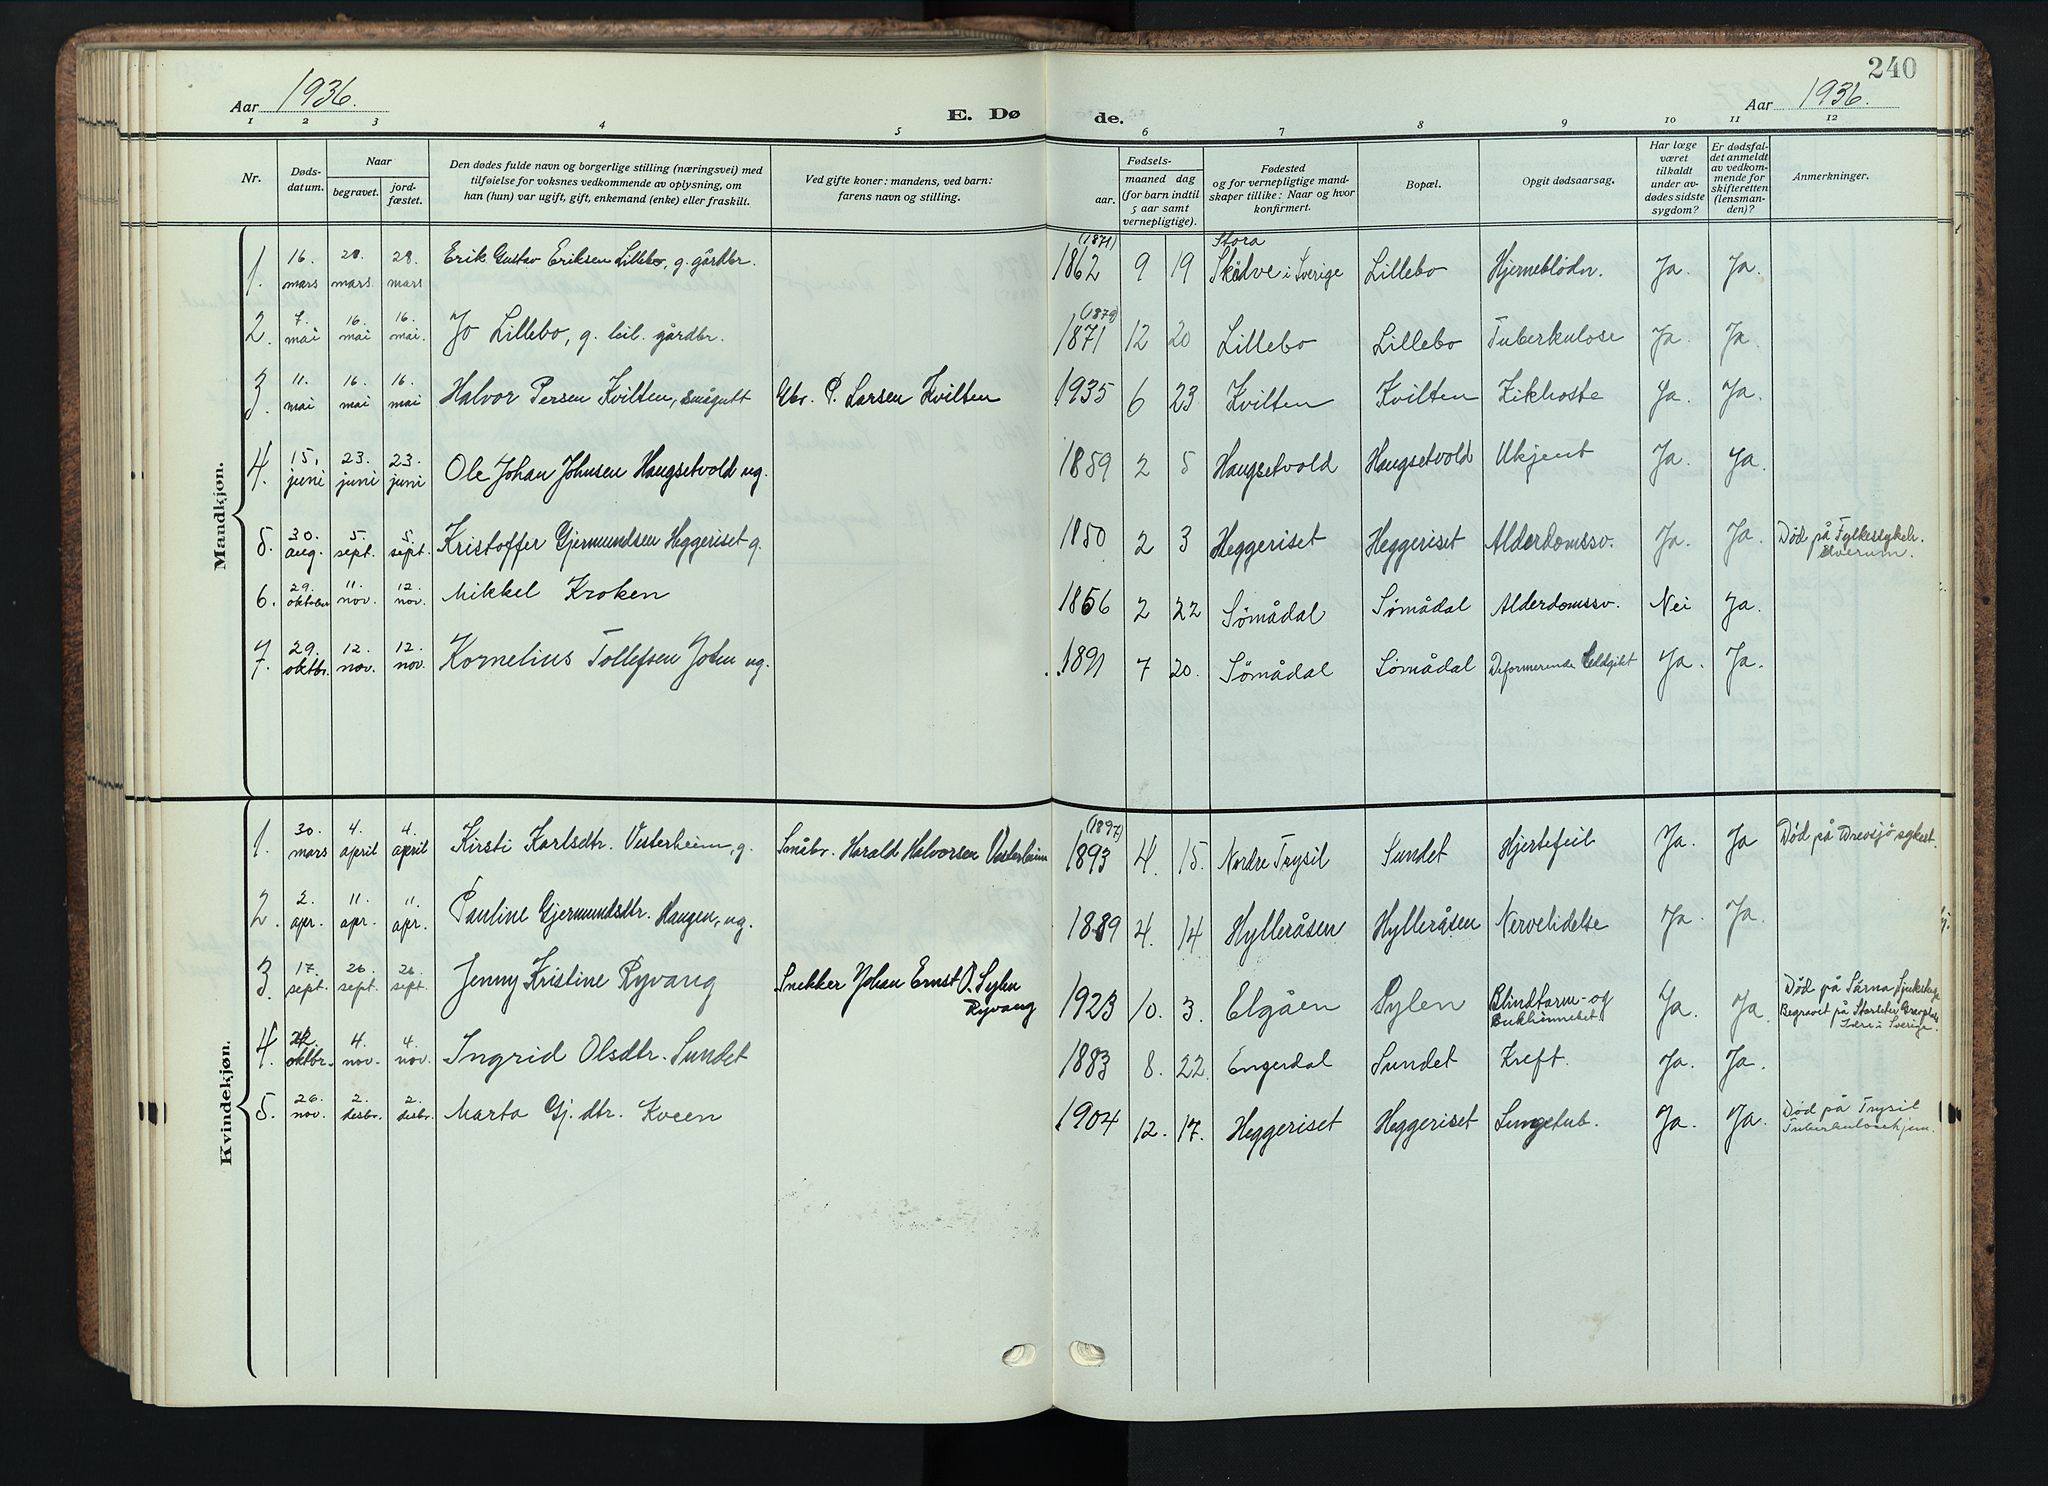 240
Aar 1936. E. Døde. Aar 1936.
1 2 3 4 5 6 7 8 9 10 11 12
Nr.
Døds-
datum.
Naar
begravet.
jord-
fæstet.
Den dødes fulde navn og borgerlige stilling (næringsvei) med
tilføielse for voksnes vedkommende av oplysning, om
han (hun) var ugift, gift, enkemand (enke) eller fraskilt.
Ved gifte koner: mandens, ved barn:
farens navn og stilling.
Fødsels-
aar. maaned dag
(for barn indtil
5 aar samt
vernepligtige).
Fødested
og for vernepligtige mand-
skaper tillike: Naar og hvor
konfirmert.
Bopæl.
Opgit dødsaarsag.
Har læge
været
tilkaldt
under av-
dødes sidste
sygdom?
Er dødsfal-
det anmeldt
av vedkom-
mende for
skifteretten
(lensman-
den)?
Anmerkninger.
Mandkjøn.
1. 16. mars 28. mars 28. mars Erik Gustav Eriksen Lillebo, g. gårdbr. (1871) 1862 9 19 Stora Skedve i Sverige Lillebo Hjerneblødn. Ja. Ja.
2. 7. mai 16. mai 16. mai. Jo Lillebo, g. gårdbr. (1879) 1871 12 20 Lillebo Lillebo Tuberkulose Ja. Ja.
3. 11. mai 16. mai 16. mai Halvor Persen Kvilten, smågutt Gbr. P. Larsen Kvilten 1935 6 23 Kvilten Kvilten Kikhoste Ja. Ja.
4. 15. juni 23. juni 23. juni Ole Johan Johnsen Haugsetvold ug. 1859 2 5 Haugsetvold Haugsetvold Ukjent Ja. Ja.
5. 30. aug. 5. sept. 5. sept. Kristoffer Gjermundsen Heggeriset g. 1850 2 3 Heggeriset Heggeriset Alderdomssv. Ja. Ja. Død på Fylkessykeh. Elverum.
6. 29. oktober 11. nov. 12. nov. Mikkel Kroken 1856 2 22 Sømådal Sømådal Alderdomssv. Nei Ja.
7. 29. oktbr. 12. nov. 12. nov. Kornelius Tollefsen Joten ug. 1891 7 20. Sømådal Sømådal Deformerende Leddgikt Ja. Ja.
Kvindekjøn.
1. 30. mars 4. april 4. april Kirsti Karlsdtr. Vesterheim, g. Småbr. Harald Halvorsen Vesterheim (1897) 1893 4. 15. Nordre Trysil Sundet Hjertefeil Ja. Ja Død på Drevsjø sykest.
2. 2. apr. 11. apr. 11. apr. Pauline Gjermundsdtr. Haugen, ug. 1889 4. 14 Hylleråsen Hylleråsen Nervelidelse Ja. Ja.
3. 17. sept. 26. sept. 26. sept. Jenny Kristine Ryvang Snekker Johan Ernst O. Sylen Ryvang 1923 10. 3. Elgåen Sylen Blindtarm- og Bukhinnebet. Ja. Ja. Død på Särna sjukstuga Begravet på Idre i Sverige.
4. oktbr. 4. nov. 4. nov. Ingrid Olsdtr. Sundet 1883 8. 22. Engerdal Sundet Kreft. Ja. Ja.
5. 26. nov. 2. desbr. 2. desbr. Marta Gj.dtr. Kveen 1904 12. 17. Heggeriset Heggeriset Lungetub. Ja. Ja. Død på Trysil Tuberkulosehjem.